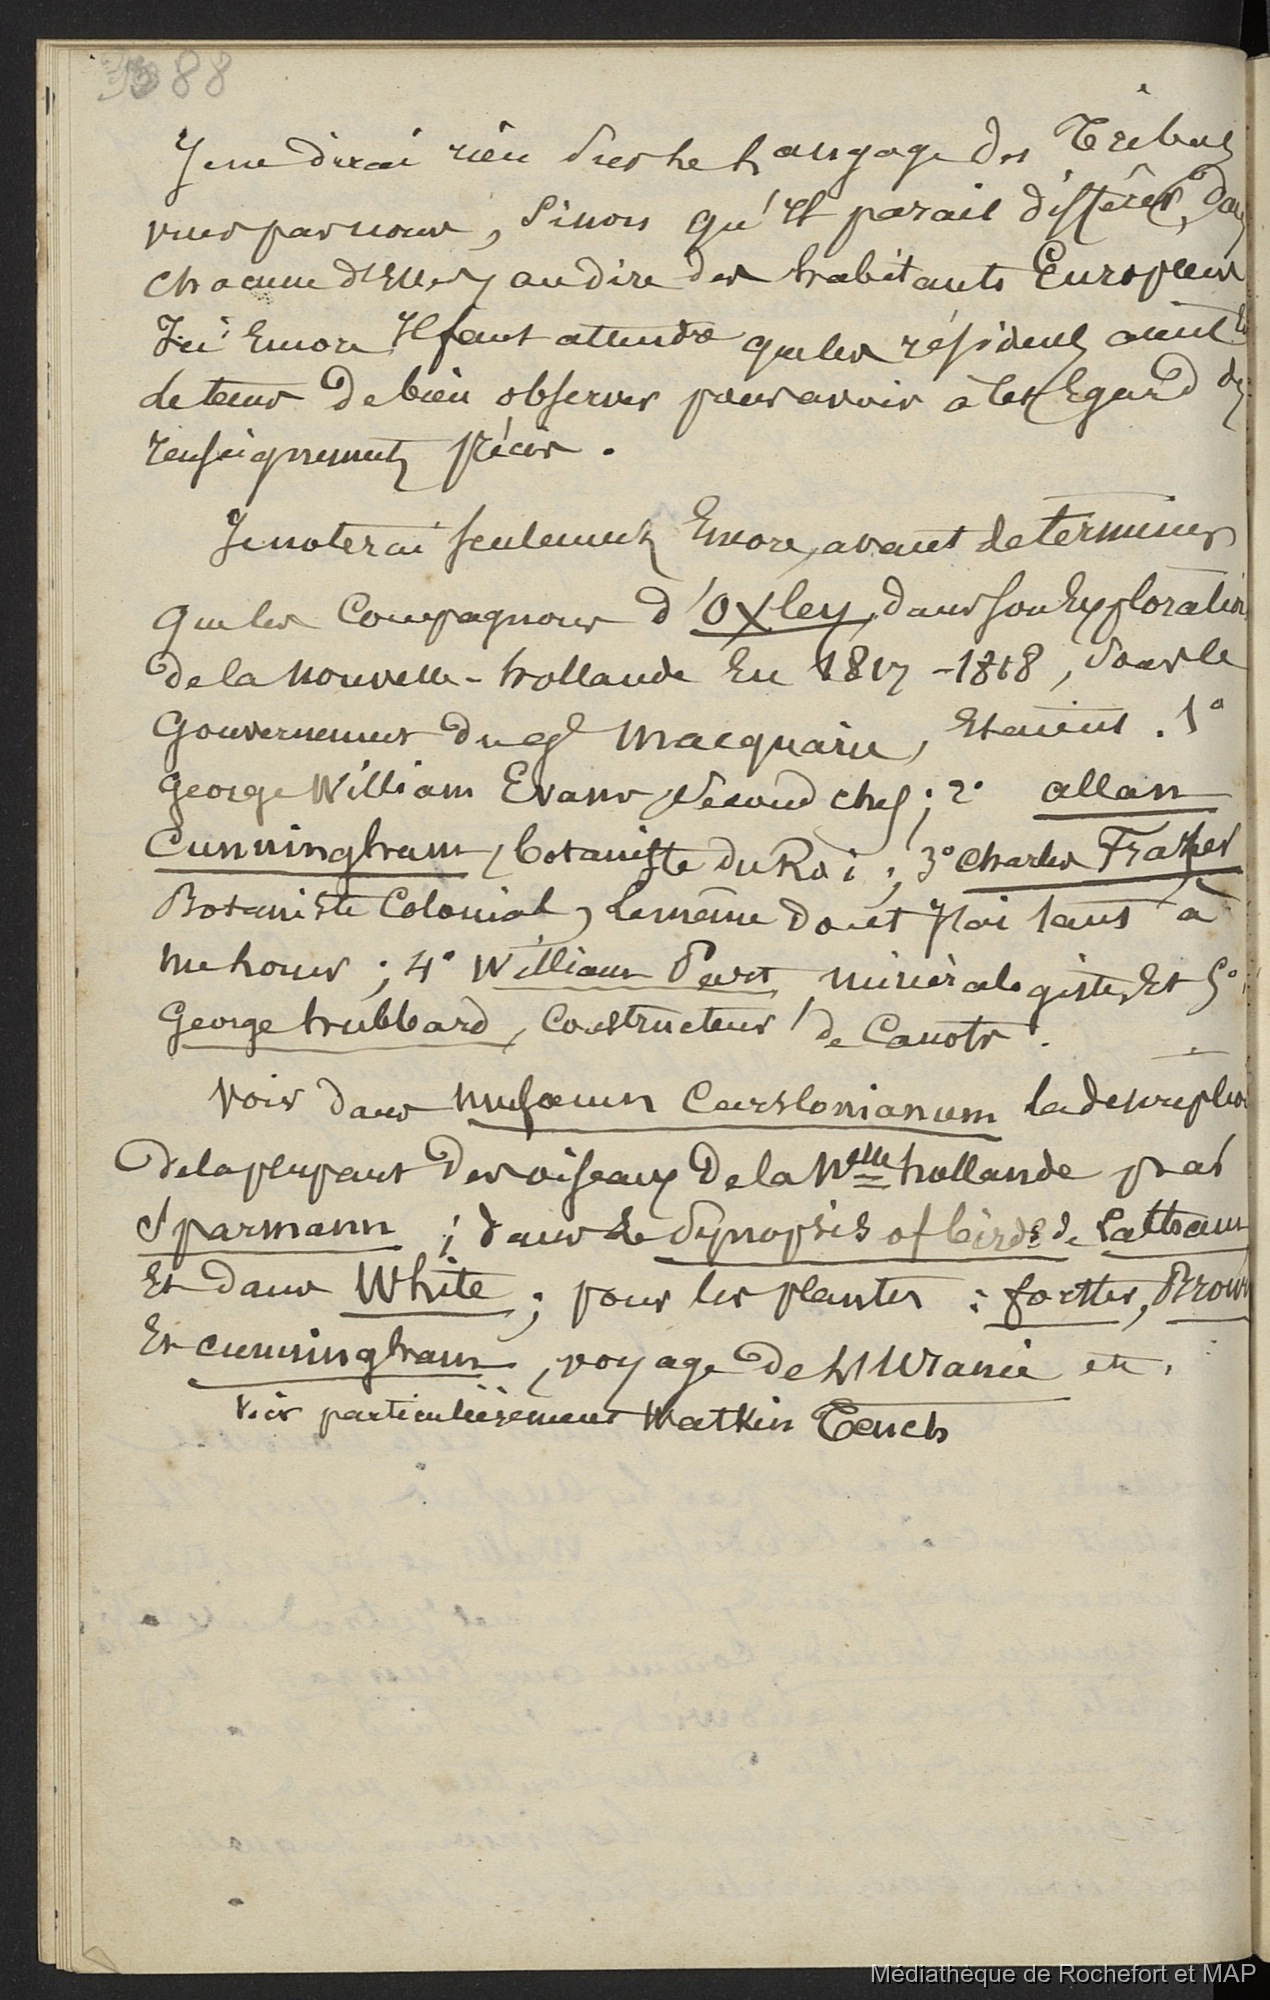 88
Je ne dirai rien sur le Langage des Tribus
vues par nous, Sinon qu'il parait différer, dans
chacune d'Elles, au dire des habitants Européens
Ici Encore Il faut attendre que les résidents aient Eu
le tems De bien observer pour avoir à cet Egard des
renseignements précis.
Je noterai seulement Encore, avant de terminer
que les Compagnons d'Oxley, dans son Exploration
De la Nouvelle-hollande En 1817-1818, Sous le
Gouvernement Du gl Macquarie, Etaient. 1°
George William Evans, Second chef; 2° allan
Cunningham, botaniste du Roi; 3° Charles Frazer
Botaniste Colonial, le même dont J'ai tant à
me louer; 4° William Parr, minéralogiste, Et 5°
George hubbard, Constructeur de Canots.
Voir dans Musæum Carslonianum la description
De la plupart Des oiseaux De la Nelle hollande par
Sparmann; dans le Synopsis of birds de Lattham
Et dans White; pour les plantes: forster, Brown
Et Cunningham, voyage De L'Uranie etc.
Voir particulièrement Watkin Tench
Médiathèque de Rochefort et MAP